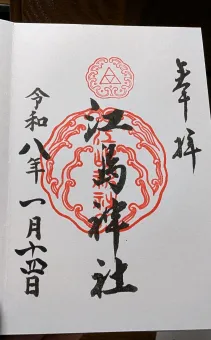 奉拝
江島神社
令和八年一月十四日